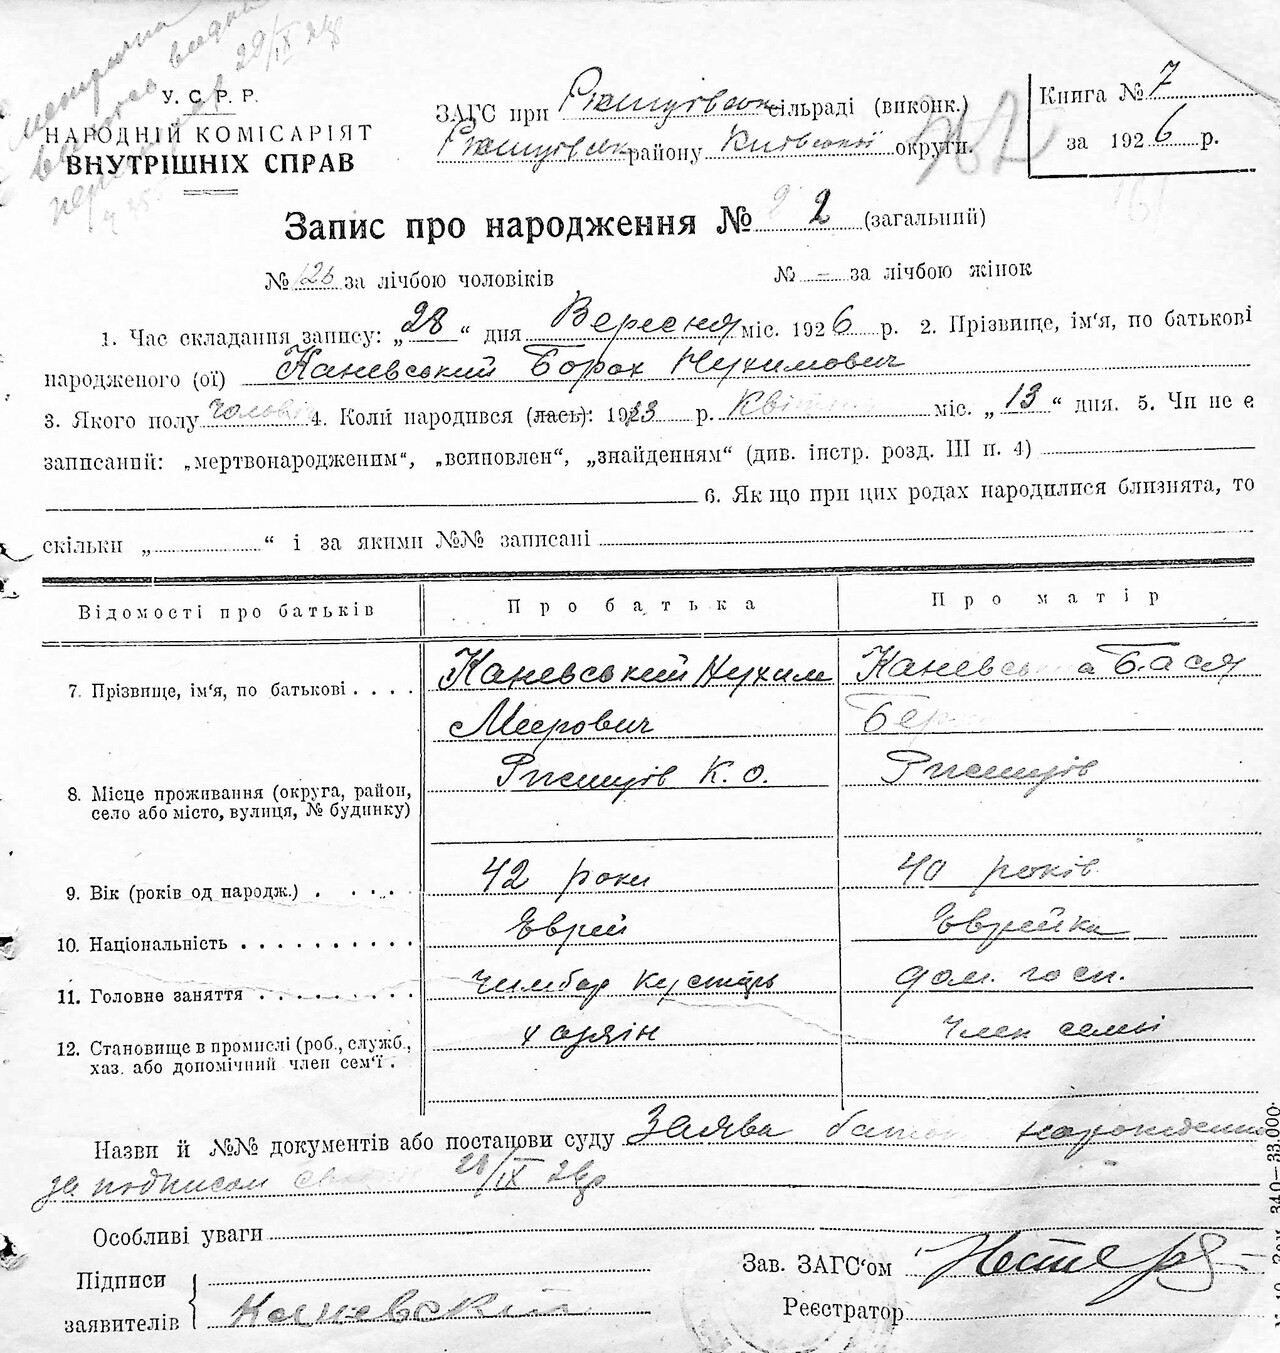 метрична
видана
29/IX 26р
У. С. Р. Р.
НАРОДНІЙ КОМІСАРІЯТ
ВНУТРІШНІХ СПРАВ
ЗАГС при Ржищівськ. сільраді (виконк.)
Ржищівськ. району Київської округи.
Книга № 7
за 1926 р.
Запис про народження № 2 (загальний)
№ 126 за лічбою чоловіків № – за лічбою жінок
1. Час складання запису: „28“ дня Вересня міс. 1926 р. 2. Прізвище, ім'я, по батькові
народженого (ої) Каневський Борох Нухимович
3. Якого полу чоловік 4. Коли народився (лась): 1913 р. Квітня міс. „13“ дня. 5. Чи не є
записаний: „мертвонародженим“, „всиновлен“, „знайденням“ (див. інстр. розд. III п. 4)
6. Якщо при цих родах народилися близнята, то
скільки „ “ і за якими №№ записані
Відомості про батьків Про батька Про матір
7. Прізвище, ім'я, по батькові . . . . Каневський Нухим Каневська Бася
Меерович Бер
8. Місце проживання (округа, район, село або місто, вулиця, № будинку) Ржищів К. О. Ржищів
9. Вік (років од народж.) . . . . . 42 роки 40 років
10. Національність . . . . . . . . . . Єврей Єврейка
11. Головне заняття . . . . . . . . . Чимбар Кустарь дом. госп.
12. Становище в промислі (роб., служб., хаз. або допомічний член сем'ї . Хазяїн Член семьі
Назви й №№ документів або постанови суду Заява народження
за подписом 28/IX 26р
Особливі уваги
Підписи
заявителів Каневский
Зав. ЗАГС'ом
Реєстратор
340—33.000.